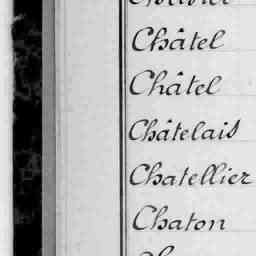 Châtel
Châtel
Châtelais
Chatellier
Chaton